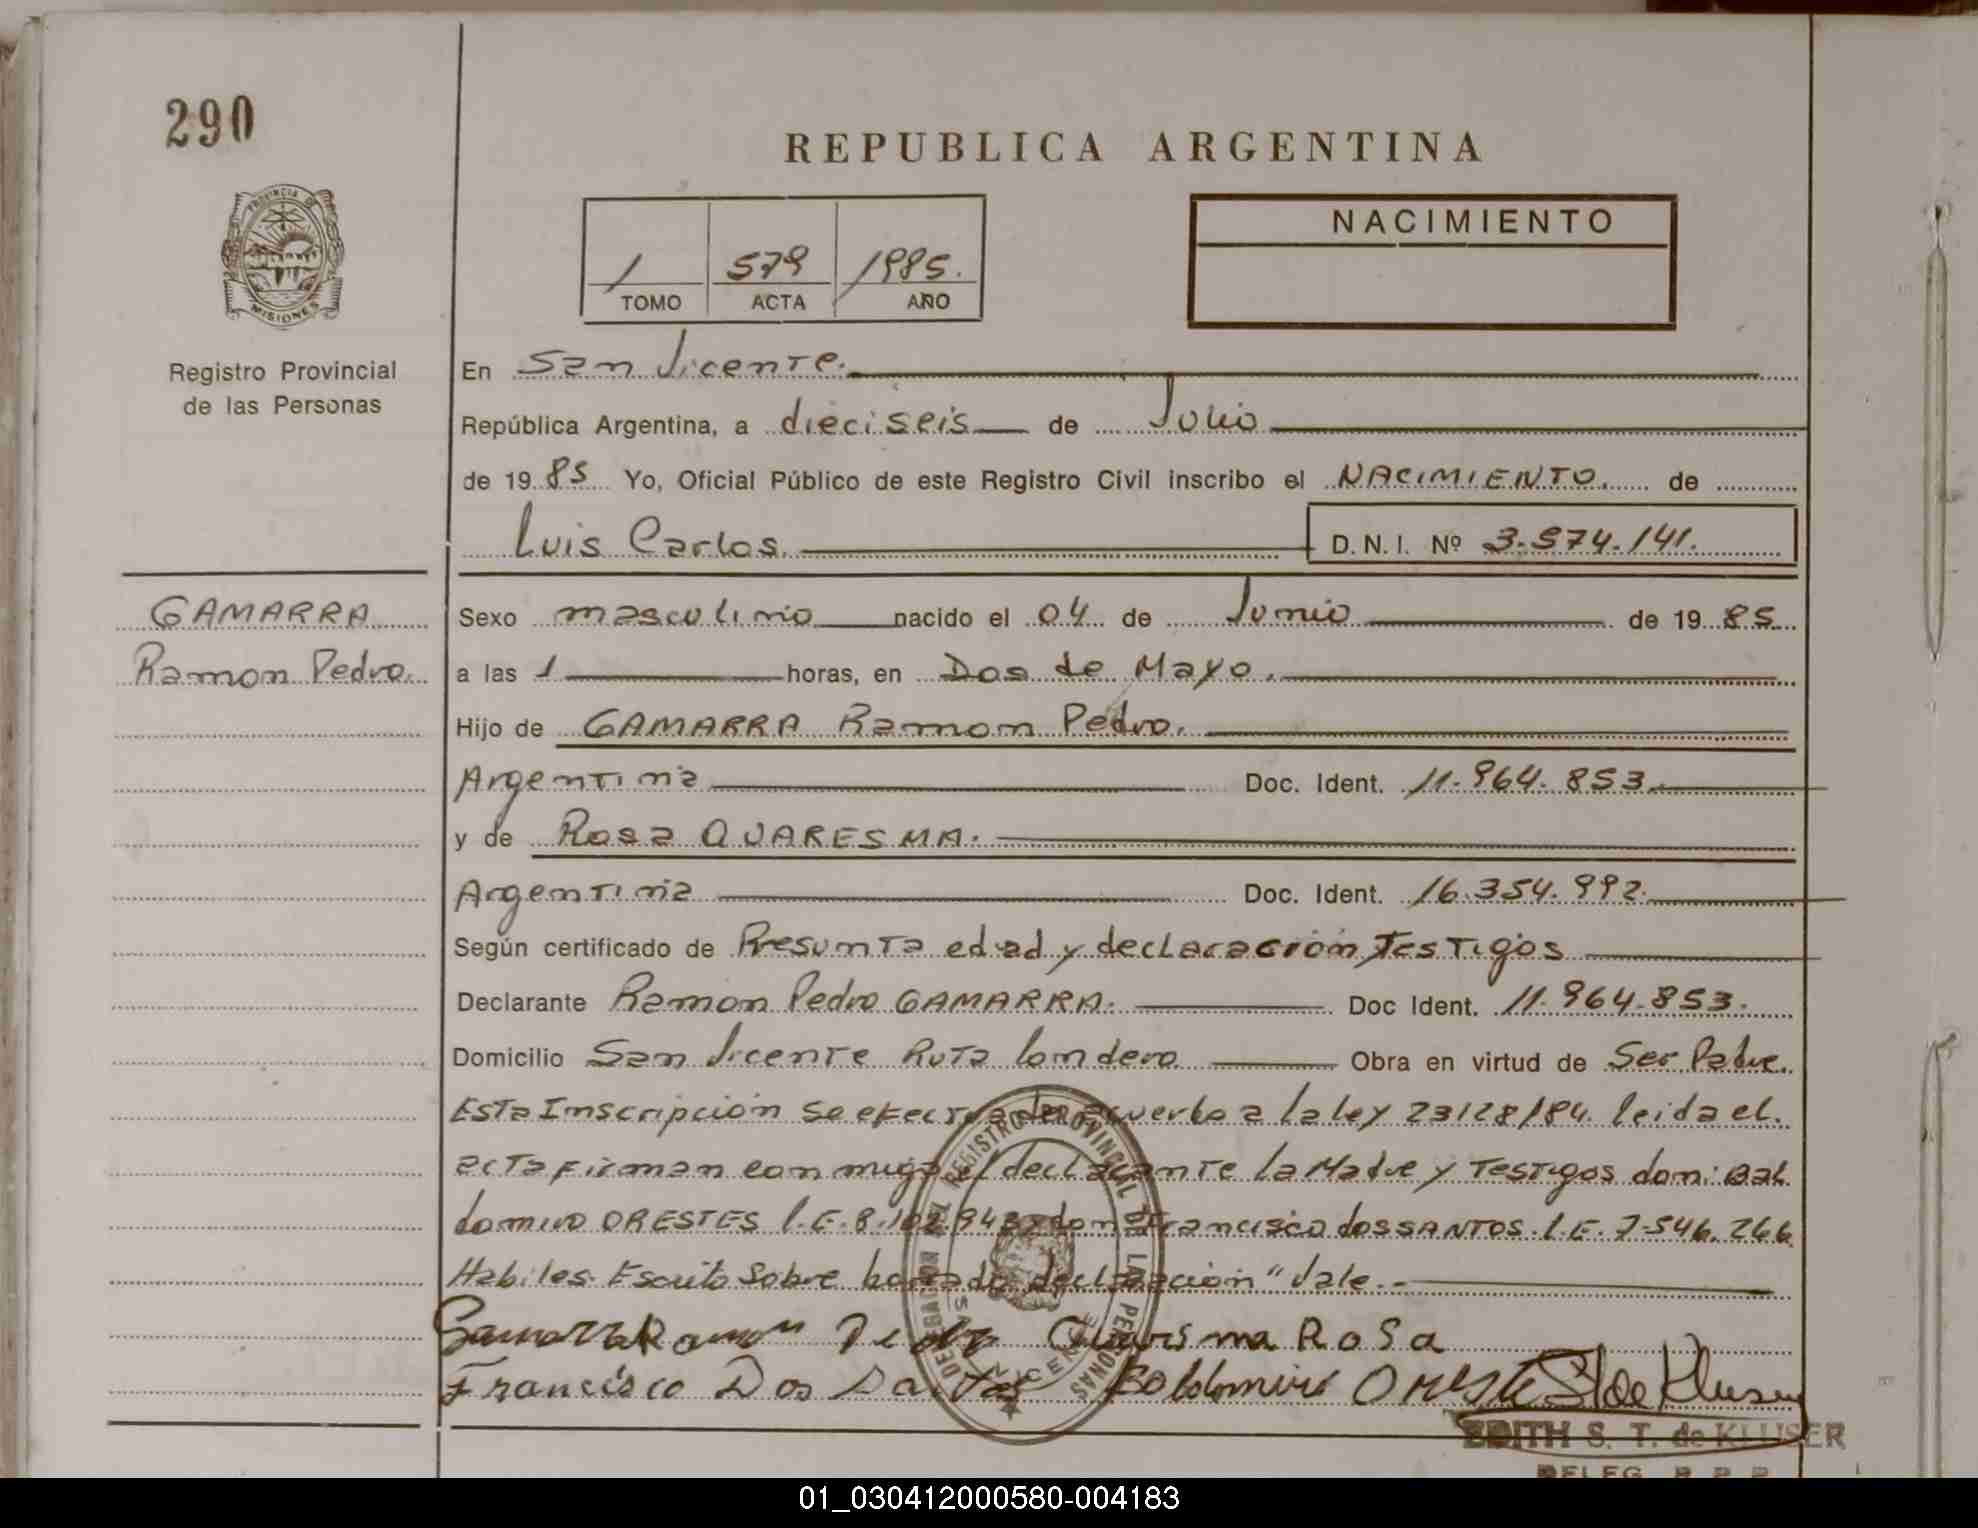 290
REPUBLICA ARGENTINA
PROVINCIA DE
MISIONES
Registro Provincial
de las Personas
1 579 1985.
TOMO ACTA AÑO
NACIMIENTO
En San Vicente.
República Argentina, a dieciseis de Julio
de 19 85 Yo, Oficial Público de este Registro Civil inscribo el NACIMIENTO. de
Luis Carlos. D. N. I. Nº 3.974.141.
GAMARRA
Ramon Pedro.
Sexo masculino nacido el 04 de Junio de 19 85
a las 1 horas, en Dos de Mayo.
Hijo de GAMARRA Ramon Pedro.
Argentina Doc. Ident. 11.964.853.
y de Rosa QUARESMA.
Argentina Doc. Ident. 16.354.992.
Según certificado de Presunta edad y declaración Testigos
Declarante Ramon Pedro GAMARRA. Doc Ident. 11.964.853.
Domicilio San Vicente Ruta Londero Obra en virtud de Ser Padre.
Esta Inscripción se efectua de acuerdo a la ley 23128/84. leida el.
acta firman conmigo el declarante la Madre y Testigos don: Bal
domiro ORESTES L.E. 8.102.943 y don Francisco dos SANTOS. L.E. 7.546.266
Habiles. Escrito sobre borrado declaración" Vale.-
Gamarra Ramon Pedro Quarisma Rosa
Francisco Dos Santos Boldomiro Oreste S T de Kluser
DELEGACION DEL REGISTRO PROVINCIAL DE LAS PERSONAS
EDITH S. T. de KLUSER
DELEG. R. P. P.
01_030412000580-004183